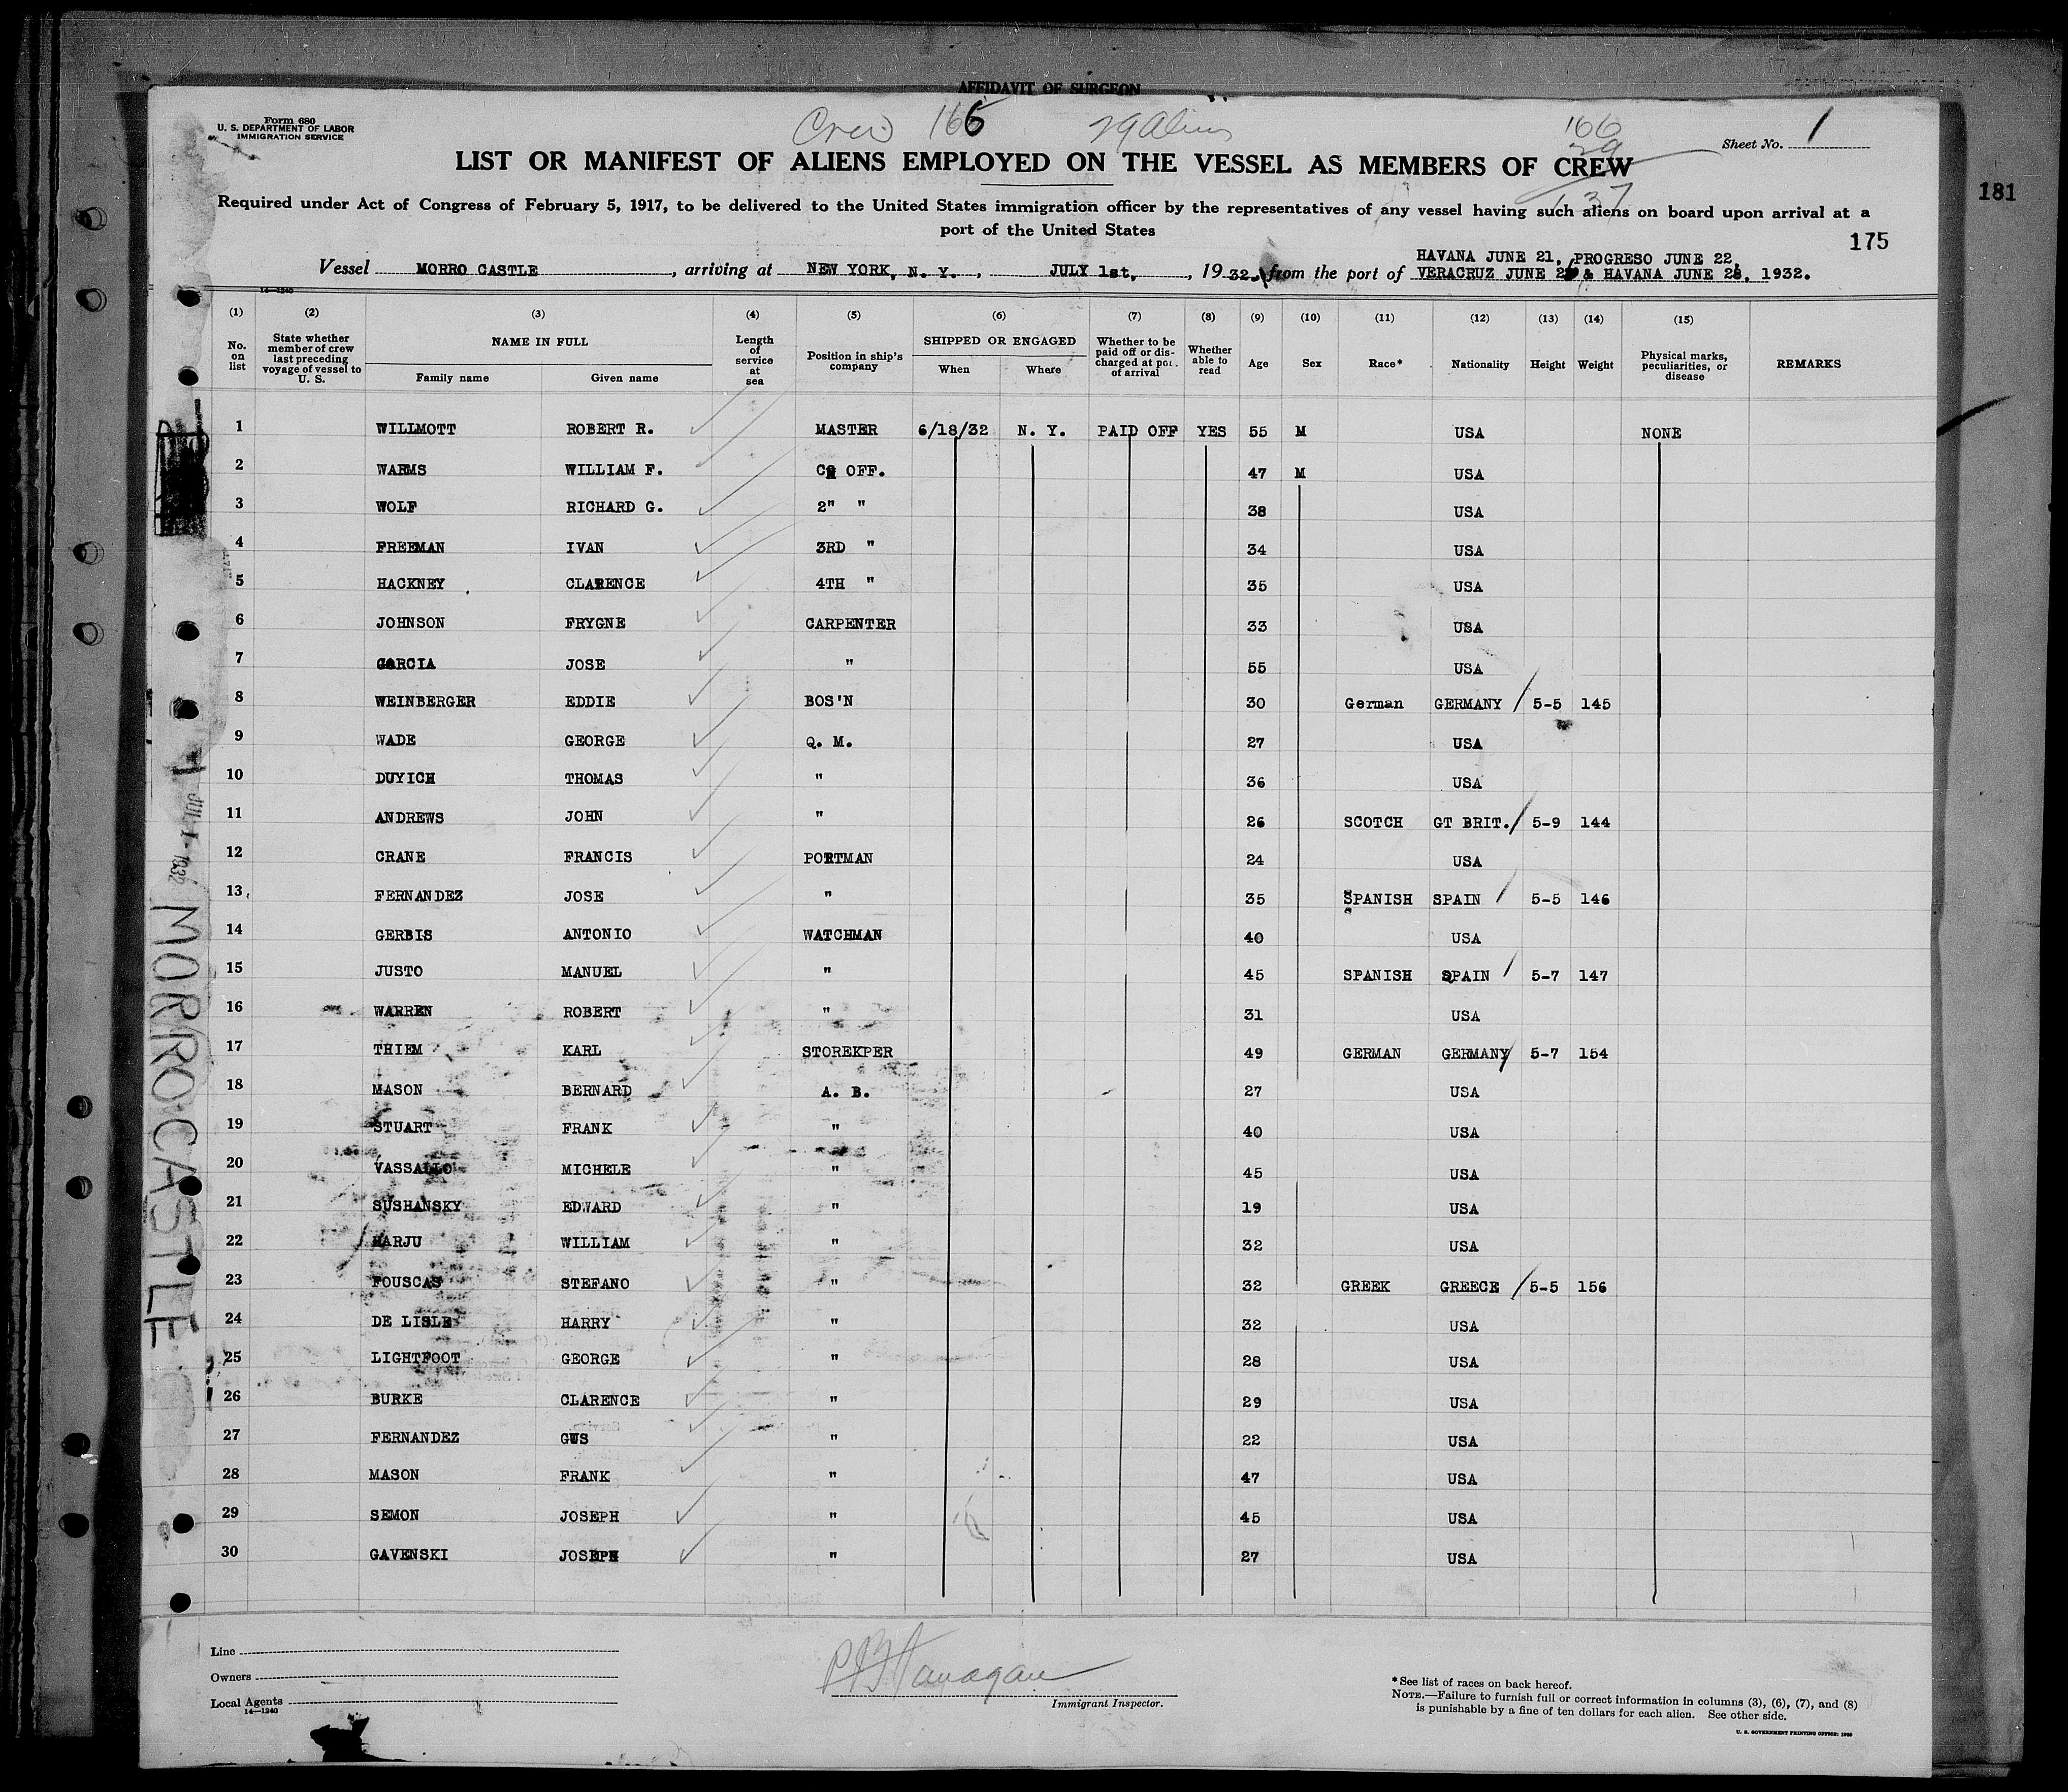 AFFIDAVIT OF SURGEON
Form 680
U. S. DEPARTMENT OF LABOR
IMMIGRATION SERVICE
Crew 166 29 Aliens
166
29
137
Sheet No. 1
LIST OR MANIFEST OF ALIENS EMPLOYED ON THE VESSEL AS MEMBERS OF CREW
181
Required under Act of Congress of February 5, 1917, to be delivered to the United States immigration officer by the representatives of any vessel having such aliens on board upon arrival at a
port of the United States
175
HAVANA JUNE 21, PROGRESO JUNE 22,
Vessel MORRO CASTLE, arriving at NEW YORK, N. Y., JULY 1st, 1932, from the port of VERACRUZ JUNE & HAVANA JUNE 28, 1932.
14—1240
(1) (2) (3) (4) (5) (6) (7) (8) (9) (10) (11) (12) (13) (14) (15)
No. on list
State whether member of crew last preceding voyage of vessel to U. S.
NAME IN FULL
Family name Given name
Length of service at sea
Position in ship's company
SHIPPED OR ENGAGED
When Where
Whether to be paid off or discharged at port of arrival
Whether able to read
Age Sex Race* Nationality Height Weight
Physical marks, peculiarities, or disease
REMARKS
1 WILLMOTT ROBERT R. MASTER 6/18/32 N. Y. PAID OFF YES 55 M USA NONE
2 WARMS WILLIAM F. OFF. 47 M USA
3 WOLF RICHARD G. 2" " 38 USA
4 FREEMAN IVAN 3RD " 34 USA
5 HACKNEY CLARENCE 4TH " 35 USA
6 JOHNSON FRYGNE CARPENTER 33 USA
7 GARCIA JOSE " 55 USA
8 WEINBERGER EDDIE BOS'N 30 German GERMANY 5-5 145
9 WADE GEORGE Q. M. 27 USA
10 DUYICH THOMAS " 36 USA
11 ANDREWS JOHN " 26 SCOTCH GT BRIT. 5-9 144
12 CRANE FRANCIS PORTMAN 24 USA
13 FERNANDEZ JOSE " 35 SPANISH SPAIN 5-5 146
14 GERBIS ANTONIO WATCHMAN 40 USA
15 JUSTO MANUEL " 45 SPANISH SPAIN 5-7 147
16 WARREN ROBERT " 31 USA
17 THIEM KARL STOREKPER 49 GERMAN GERMANY 5-7 154
18 MASON BERNARD A. B. 27 USA
19 STUART FRANK " 40 USA
20 VASSALLO MICHELE " 45 USA
21 SUSHANSKY EDWARD " 19 USA
22 HARJU WILLIAM " 32 USA
23 FOUSCAS STEFANO " 32 GREEK GREECE 5-5 156
24 DE LISLE HARRY " 32 USA
25 LIGHTFOOT GEORGE " 28 USA
26 BURKE CLARENCE " 29 USA
27 FERNANDEZ GUS " 22 USA
28 MASON FRANK " 47 USA
29 SEMON JOSEPH " 45 USA
30 GAVENSKI JOSEPH " 27 USA
JUL 1 - 1932
MORRO CASTLE
Line
Owners
Local Agents
14—1240
Immigrant Inspector.
* See list of races on back hereof.
NOTE.—Failure to furnish full or correct information in columns (3), (6), (7), and (8)
is punishable by a fine of ten dollars for each alien. See other side.
U. S. GOVERNMENT PRINTING OFFICE: 1930